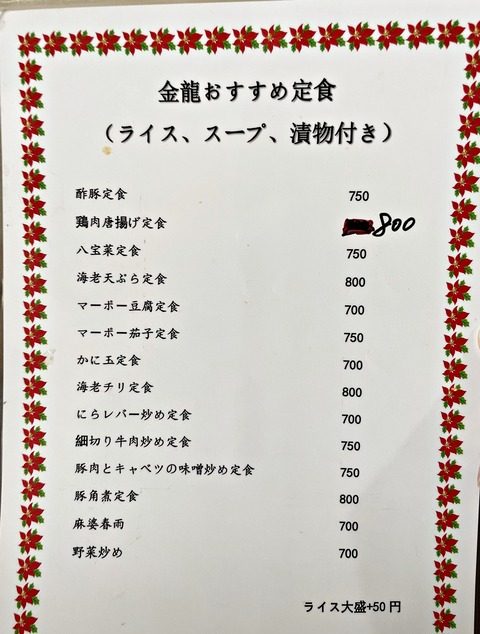 金龍おすすめ定食
（ライス、スープ、漬物付き）
酢豚定食 750
鶏肉唐揚げ定食 800
八宝菜定食 750
海老天ぷら定食 800
マーボー豆腐定食 700
マーボー茄子定食 750
かに玉定食 700
海老チリ定食 800
にらレバー炒め定食 700
細切り牛肉炒め定食 750
豚肉とキャベツの味噌炒め定食 750
豚角煮定食 800
麻婆春雨 700
野菜炒め 700
ライス大盛+50円